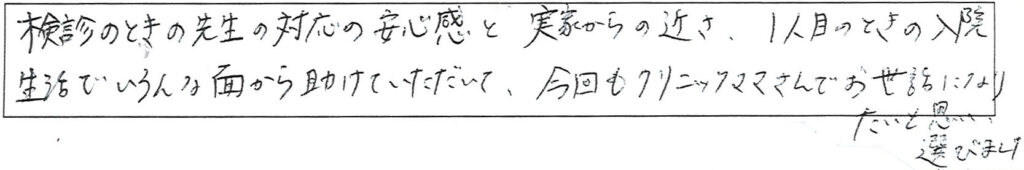 検診のときの先生の対応の安心感と実家からの近さ、1人目のときの入院
生活でいろんな面から助けていただいて、今回もクリニックママさんでお世話になり
たいと思い、
選びました